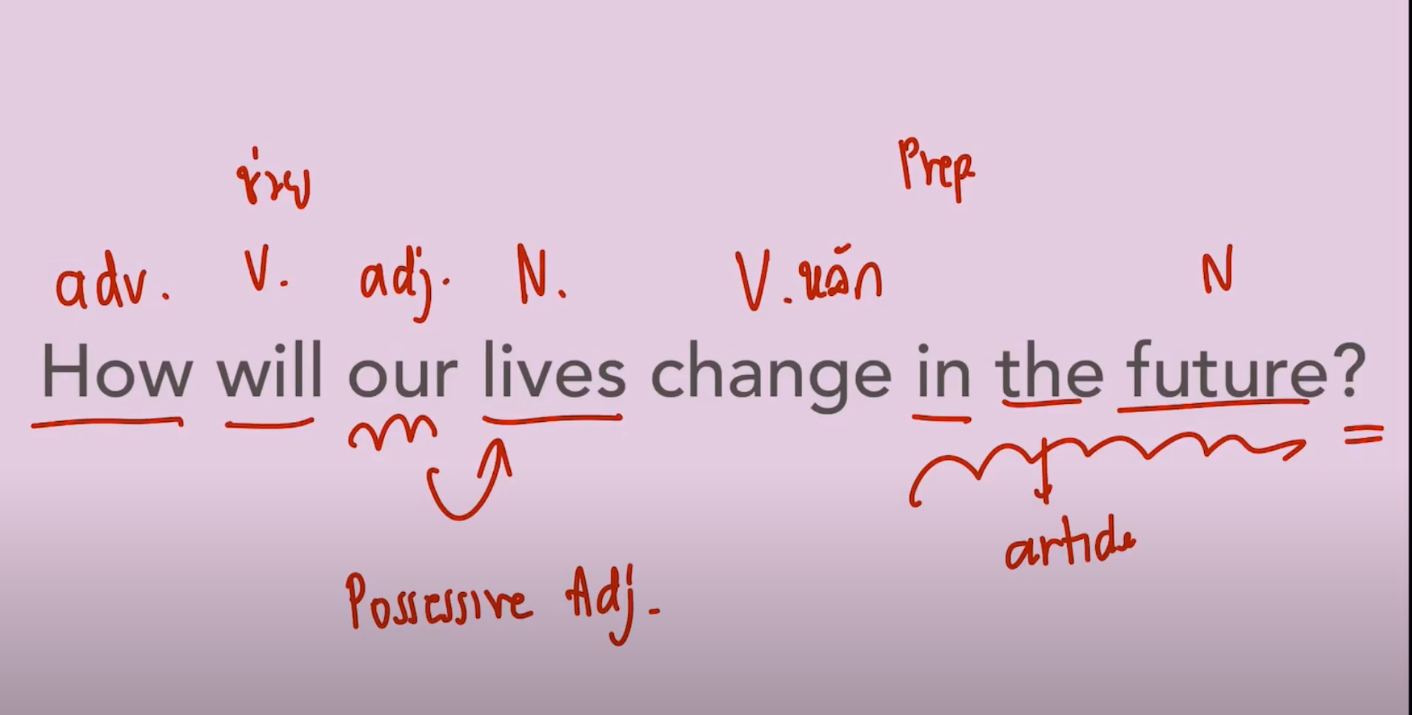 ช่วย
Prep
adv. V. adj. N. V.หลัก N
How will our lives change in the future?
article
Possessive Adj.